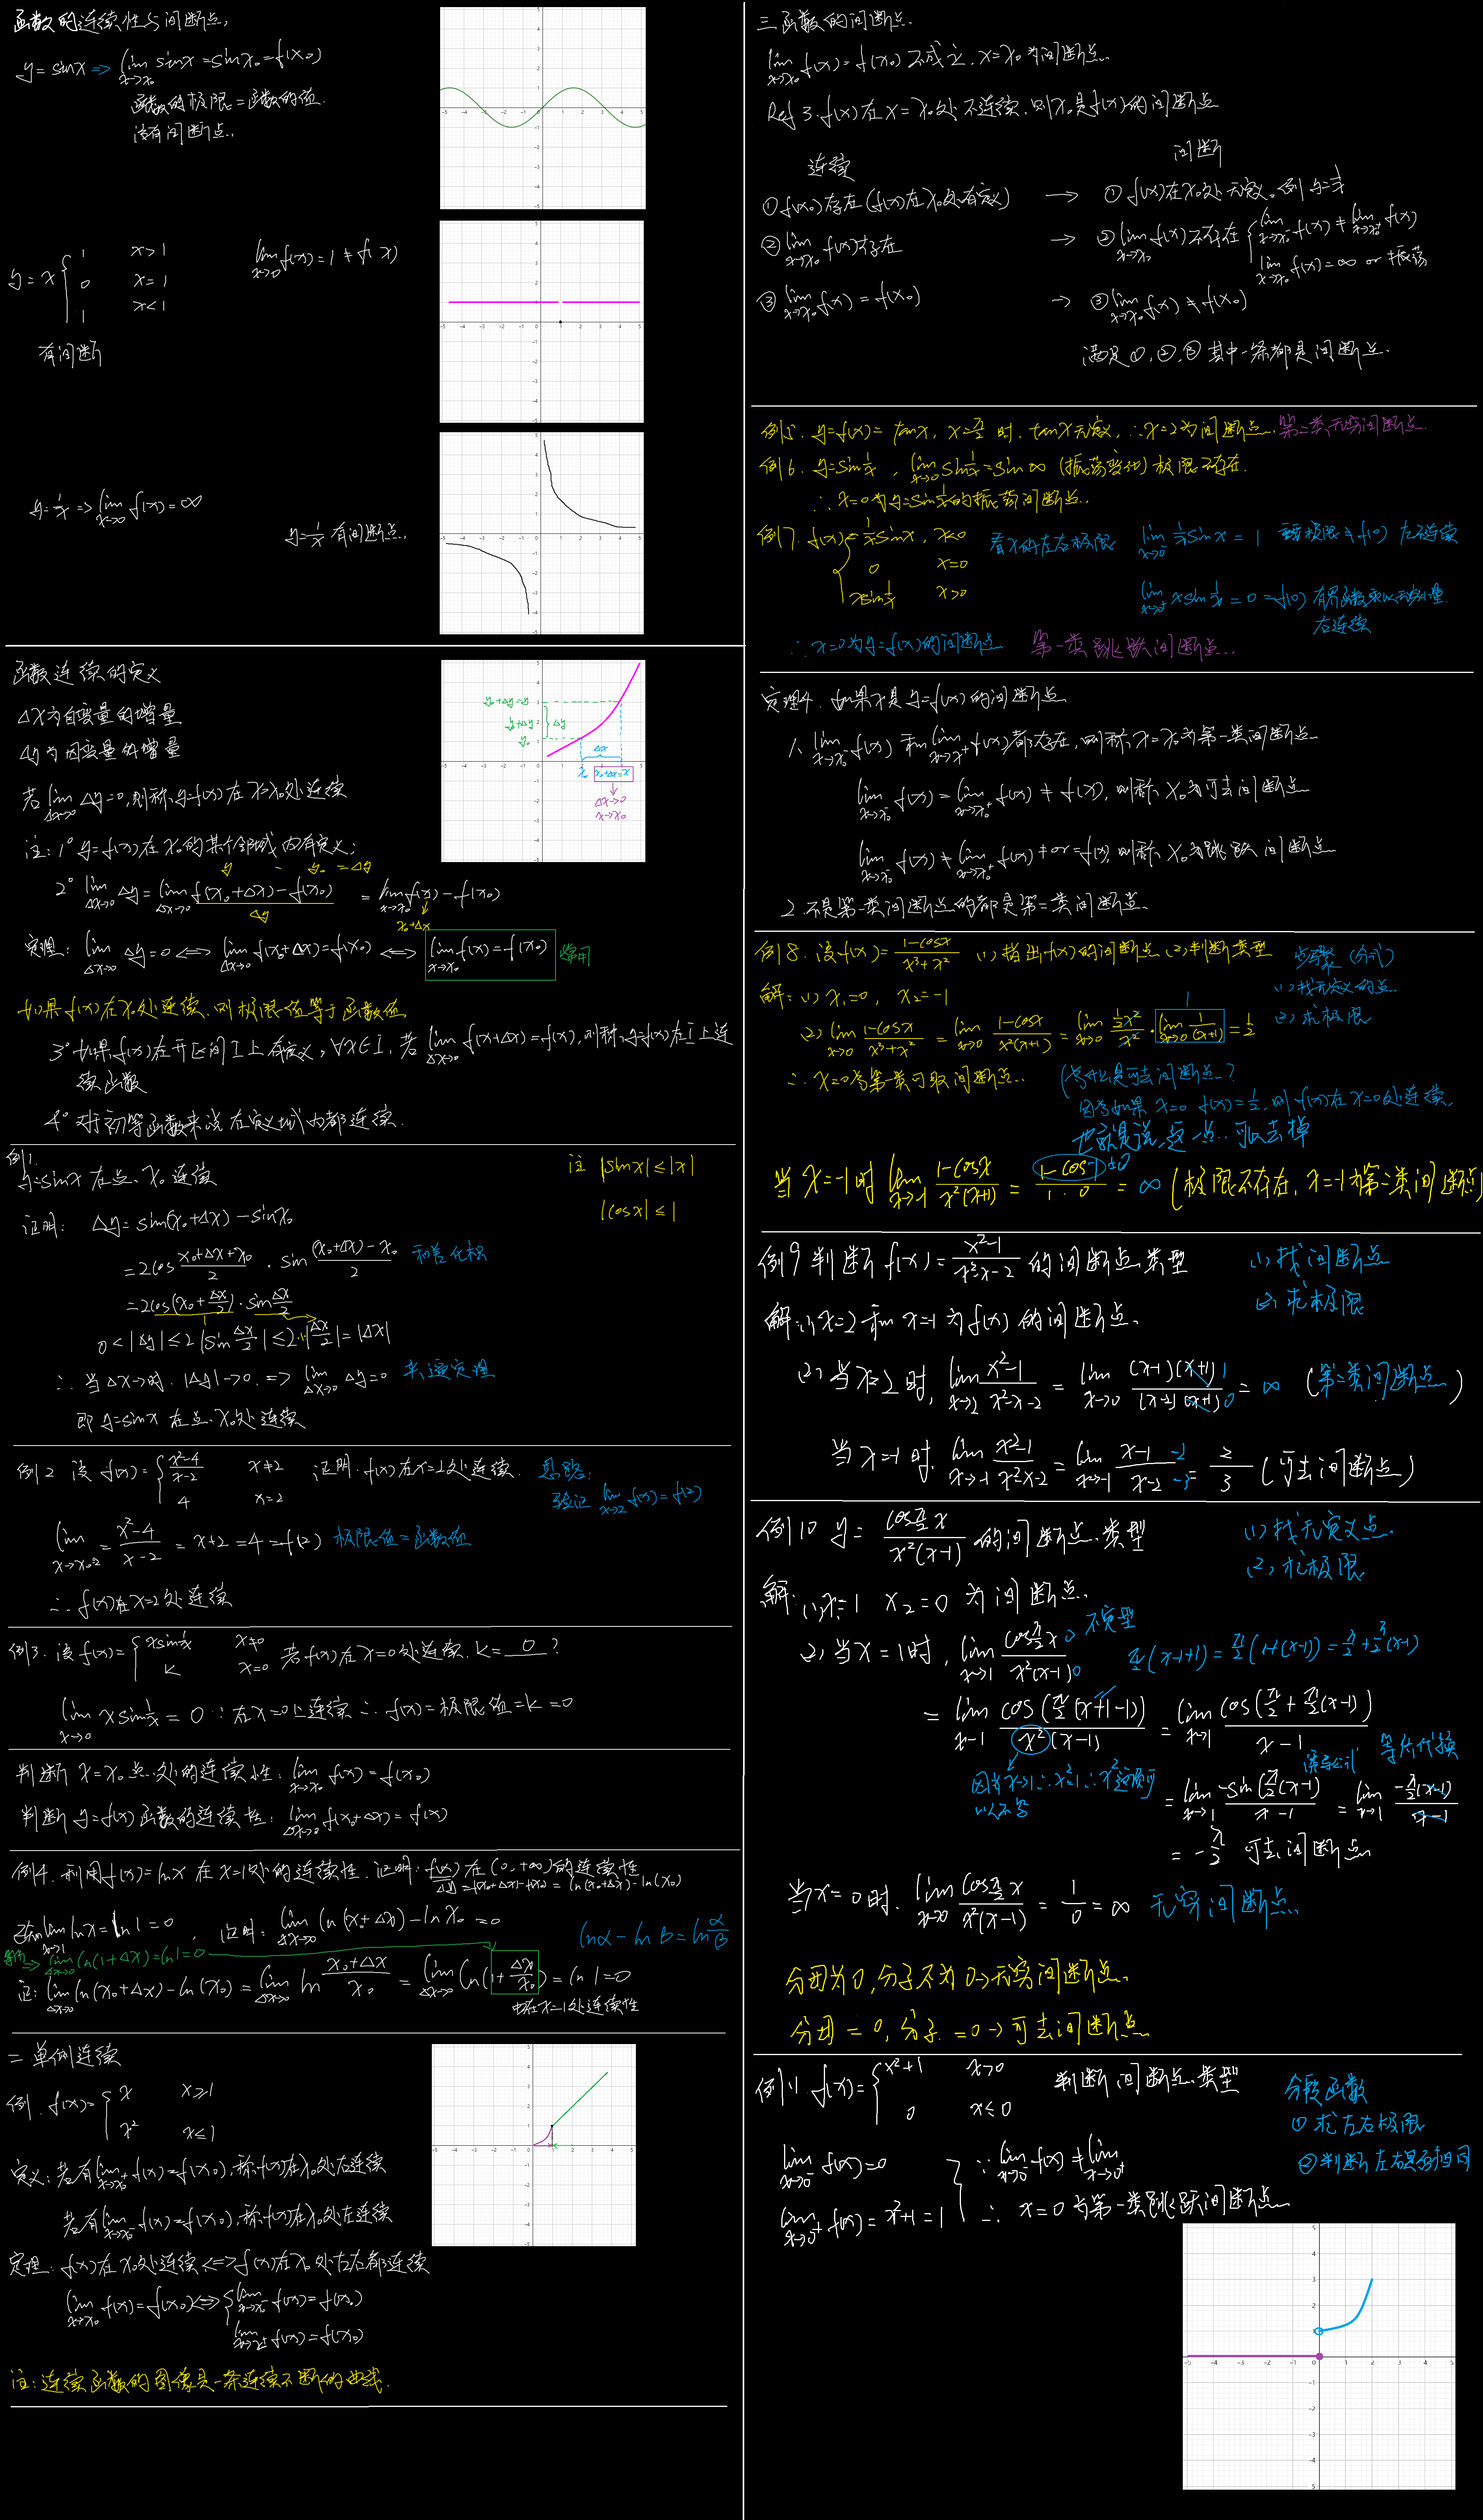 函数的连续性与间断点.
y=sinx => lim x→x₀ sinx=sinx₀=f(x₀)
函数的极限=函数的值.
没有间断点.
y=x { 1 x>1
0 x=1
1 x<1
lim x→0 f(x)=1≠f( x)
有间断
y=1/x => lim x→0 f(x)=∞
y=1/x 有间断点.
函数连续的定义
Δx为自变量的增量
Δy为因变量的增量
若 lim Δx→0 Δy=0,则称y=f(x)在x=x₀处连续
y₀+Δy=y
y₀+Δy
Δy
y₀
Δx
x₀ x₀+Δx=x
Δx→0
x→x₀
注: 1° y=f(x)在x₀的某个邻域内有定义;
y - y₀ =Δy
2° lim Δx→0 Δy=lim Δx→0 f(x₀+Δx)-f(x₀) = lim x→x₀ f(x)-f(x₀)
Δy
x₀+Δx
定理: lim Δx→0 Δy=0 <=> lim Δx→0 f(x₀+Δx)=f(x₀) <=> lim x→x₀ f(x)=f(x₀) 常用
如果f(x)在x₀处连续.则极限值等于函数值
3° 如果f(x)在开区间I上有定义, ∀x∈I, 若 lim Δx→0 f(x+Δx)=f(x),则称y=f(x)在I上连
续函数
4° 对于初等函数来说在定义域内都连续.
例1.
y=sinx 在点x₀连续
注 |sinx|≤|x|
|cosx|≤1
证明: Δy=sin(x₀+Δx)-sinx₀
=2cos (x₀+Δx+x₀)/2 · sin ((x₀+Δx)-x₀)/2 和差化积
=2cos(x₀+Δx/2)·sin Δx/2
0<|Δy|≤2|sin Δx/2|≤2·|Δx/2|=|Δx|
∴ 当Δx→时. |Δy|→0. => lim Δx→0 Δy=0 夹逼定理
即 y=sinx 在点x₀处连续
例2 设 f(x)={ (x²-4)/(x-2) x≠2
4 x=2
证明. f(x)在x=2处连续. 思路:
验证 lim x→2 f(x)=f(2)
lim x→x₀2 = (x²-4)/(x-2) = x+2=4=f(2) 极限值=函数值
∴ f(x)在x=2处连续
例3. 设f(x)={ xsin1/x x≠0
k x=0
若f(x)在x=0处连续. k= 0 ?
lim x→0 xsin1/x = 0 ∵ 在x=0上连续 ∴ f(x)=极限值=k=0
判断 x=x₀点处的连续性: lim x→x₀ f(x)=f(x₀)
判断 y=f(x)函数的连续性: lim Δx→0 f(x₀+Δx)=f(x)
例4. 利用f(x)=lnx 在x=1处的连续性. 证明: f(x)在(0,+∞)的连续性
Δy=f(x₀+Δx)-f(x₀) = ln(x₀+Δx)-ln(x₀)
lim x→1 lnx=ln1=0 , 证明: lim Δx→0 ln(x₀+Δx)-lnx₀=0
lnα-lnβ=ln α/β
=> lim Δx→0 ln(1+Δx)=ln1=0
证: lim Δx→0 ln(x₀+Δx)-ln(x₀)=lim Δx→0 ln (x₀+Δx)/x₀ = lim Δx→0 ln(1+Δx/x₀)=ln1=0
由在x=1处连续性
二 单侧连续
例. f(x)={ x x≥1
x² x≤1
定义: 若有lim x→x₀⁺ f(x)=f(x₀),称f(x)在x₀处右连续
若有lim x→x₀⁻ f(x)=f(x₀),称f(x)在x₀处左连续
定理: f(x)在x₀处连续<=>f(x)在x₀处左右都连续
lim x→x₀ f(x)=f(x₀)<=>{ lim x→x₀⁻ f(x)=f(x₀)
lim x→x₀⁺ f(x)=f(x₀)
注: 连续函数的图像是一条连续不断的曲线.
三 函数的间断点.
lim x→x₀ f(x)=f(x₀)不成立. x=x₀为间断点.
Ref 3. f(x)在x=x₀处不连续. 则x₀是f(x)的间断点
连续
间断
①f(x₀)存在(f(x)在x₀处有定义) → ① f(x)在x₀处无定义. 例y=1/x
②lim x→x₀ f(x)存在 → ②lim x→x₀ f(x)不存在 { lim x→x₀⁻ f(x)≠lim x→x₀⁺ f(x)
lim x→x₀ f(x)=∞ or 振荡
③lim x→x₀ f(x)=f(x₀) → ③lim x→x₀ f(x)≠f(x₀)
满足①,②,③其中一条都是间断点.
例5. y=f(x)=tanx, x=π/2时. tanx无定义, ∴x=2为间断点. 第二类无穷间断点.
例6. y=sin1/x , lim x→0 sin1/x=sin∞ (振荡变化) 极限不存在.
∴ x=0为y=sin1/x的振荡间断点.
例7. f(x)={ 1/x sinx, x<0
0 x=0
xsin1/x x>0
看x的左右极限 lim x→0⁻ 1/x sinx=1 极限≠f(0) 左不连续
lim x→0⁺ xsin1/x=0=f(0) 有界函数乘以无穷小量.
右连续
∴ x=0为y=f(x)的间断点 第一类跳跃间断点.
定理4. 如果x是y=f(x)的间断点
1. lim x→x₀⁻ f(x) 和 lim x→x⁺ f(x)都存在,则称x=x₀为第一类间断点
lim x→x₀⁻ f(x)=lim x→x₀⁺ f(x)≠f(x), 则称x₀为可去间断点
lim x→x₀⁻ f(x)≠lim x→x₀⁺ f(x)≠or=f(x), 则称x₀为跳跃间断点
2. 不是第一类间断点的都是第二类间断点.
例8. 设f(x)=(1-cosx)/(x³+x²) (1)指出f(x)的间断点 (2)判断类型 步骤(分式)
解: (1) x₁=0, x₂=-1
(1) 找无定义的点.
1
(2) lim x→0 (1-cosx)/(x³+x²) = lim x→0 (1-cosx)/(x²(x+1)) = lim x→0 (1/2x²)/x² · lim x→0 1/(x+1) = 1/2 (2) 求极限
∴ x=0为第一类可取间断点. (为什么是可去间断点?
因为如果x=0 f(x)=1/2, 则f(x)在x=0处连续.
也就是说这一点 可以去掉
当x=-1时 lim x→-1 (1-cosx)/(x²(x+1)) = (1-cos-1)/(1·0) ≠0 = ∞ (极限不存在, x=-1为第二类间断点)
例9 判断f(x)=(x²-1)/(x²-x-2) 的间断点类型 (1) 找间断点
(2) 求极限
解: (1) x=2 和 x=-1 为f(x)的间断点.
(2) 当x=2时, lim x→2 (x²-1)/(x²-x-2) = lim x→0 ((x-1)(x+1))/((x-2)(x+1)) 1 0 = ∞ (第二类间断点)
当x=-1时. lim x→-1 (x²-1)/(x²-x-2) = lim x→-1 (x-1)/(x-2) -2 -3 = 2/3 (可去间断点)
例10 y=(cosπ/2 x)/(x²(x-1)) 的间断点类型 (1) 找无定义点.
(2) 求极限
解: (1) x₁=1 x₂=0 为间断点.
(2) 当x=1时, lim x→1 (cosπ/2 x)/(x²(x-1)) 0 0 不定型
π/2(x-1+1)=π/2(1+(x-1))=π/2+π/2(x-1)
= lim x→1 cos(π/2(x+1-1))/(x²(x-1)) = lim x→1 cos(π/2+π/2(x-1))/(x-1)
因为x→1∴x²=1∴x²这项可
以不写
诱导公式 等价代换
= lim x→1 -sin(π/2(x-1))/(x-1) = lim x→1 (-π/2(x-1))/(x-1)
= -π/2 可去间断点
当x=0时. lim x→0 (cosπ/2 x)/(x²(x-1)) = 1/0 = ∞ 无穷间断点
分母为0,分子不为0→无穷间断点.
分母=0,分子=0→可去间断点
例11. f(x)={ x²+1 x>0
0 x≤0
判断间断点类型 分段函数
① 求左右极限
② 判断左右是否相同
lim x→0⁻ f(x)=0
lim x→0⁺ f(x)=x²+1=1
∵ lim x→0⁻ f(x)≠lim x→0⁺
∴ x=0为第一类跳跃间断点